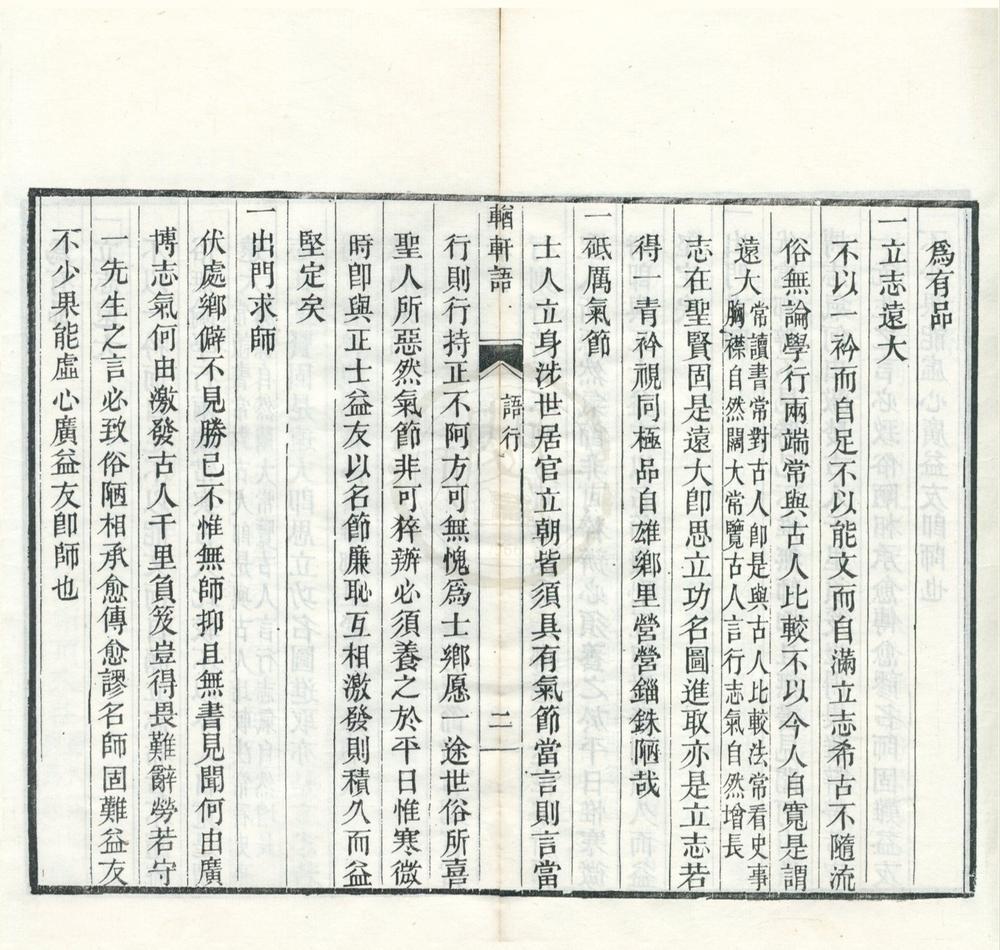 爲有品
一立志遠大
不以一衿而自足不以能文而自滿立志希古不隨流
俗無論學行兩端常與古人比較不以今人自寬是謂
遠大常讀書常對古人卽是與古人比較法常看史事
胸襟自然闊大常覽古人言行志氣自然增長
志在聖賢固是遠大卽思立功名圖進取亦是立志若
得一青衿視同極品自雄鄕里營營錙銖陋哉
一砥厲氣節
士人立身涉世居官立朝皆須具有氣節當言則言當
輶軒語
語行
二
行則行持正不阿方可無愧爲士鄕愿一途世俗所喜
聖人所惡然氣節非可猝辦必須養之於平日惟寒微
時卽與正士益友以名節廉恥互相激發則積久而益
堅定矣
一出門求師
伏處鄕僻不見勝己不惟無師抑且無書見聞何由廣
博志氣何由激發古人千里負笈豈得畏難辭勞若守
一先生之言必致俗陋相承愈傳愈謬名師固難益友
不少果能虛心廣益友卽師也